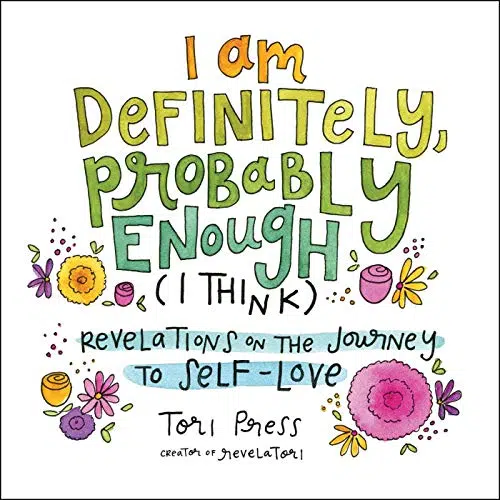 I am
DEFINITELY,
PROBABLY
ENOUGH
(I THINK)
REVELATIONS ON THE JOURNEY
TO SELF-LOVE
TORI PRESS
CREATOR OF REVELATORI